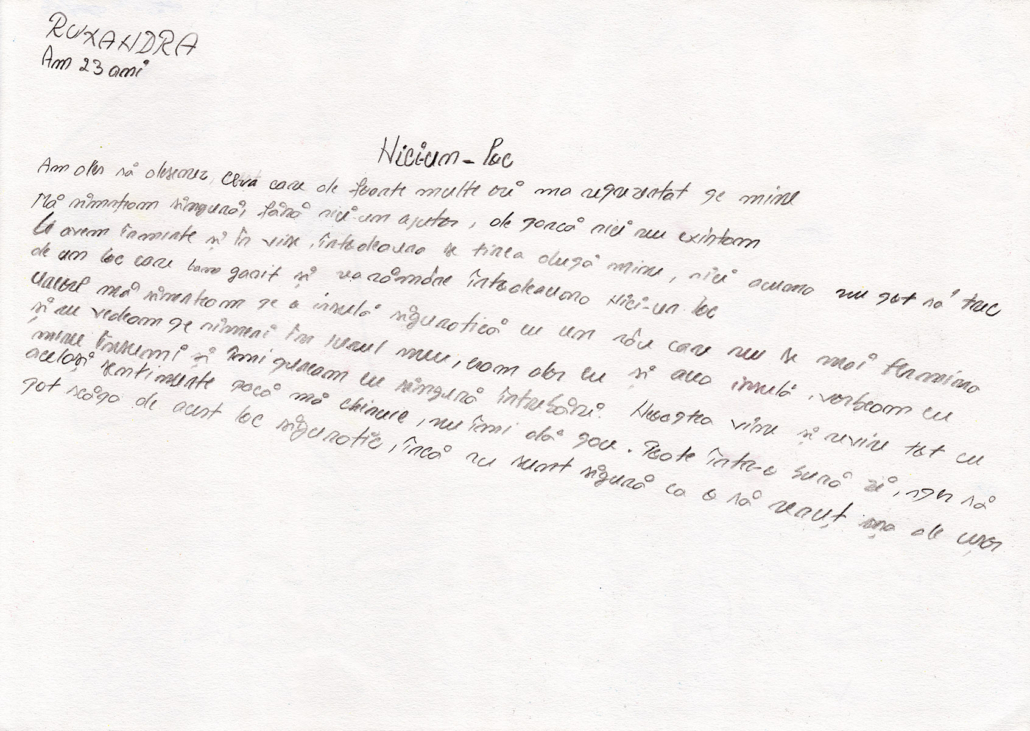 RUXANDRA
Am 23 ani
Niciun-Loc
Am ales să descriu ceva care de foarte multe ori ma reprezentat pe mine
Mă simțeam singură, fără nici-un ajutor, de parcă nici nu existam
avem în minte și în vise, întodeauna se tinea după mine, nici acuma nu pot să trec
de un loc care m-a rămâne întodeauna Nici-un loc
Uneori mă simteam pe o insulă siguratică cu un râu care nu se mai termina
și nu vedeam pe nimeni în jurul meu, eram doar eu și acea insulă, vorbeam cu
mine însumi și îmi puneam eu singură întrebări. Noaptea vine și revine tot cu
același sentimente parcă mă chinuie, nu îmi dă pace. Poate într-o bună zi, sper să
pot scăpa de acest loc siguratic, încă nu sunt sigură ca o să reușesc așa de ușor